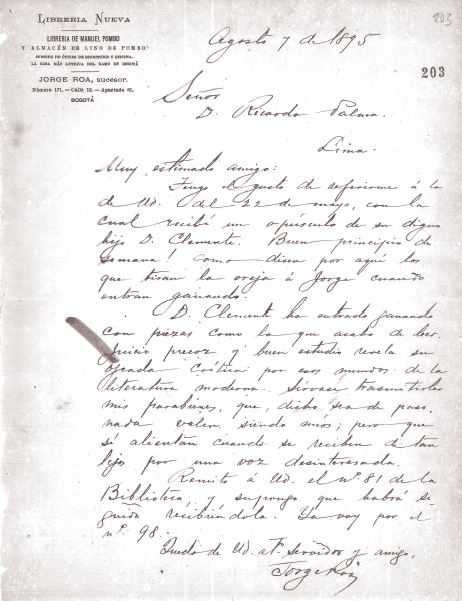 203
LIBRERIA NUEVA
LIBRERIA DE MANUEL POMBO
Y ALMACÉN DE LINO DE POMBO
SURTIDO DE ÚTILES DE ESCRITORIO Y OFICINA,
LA CASA MÁS ANTIGUA DEL RAMO EN BOGOTÁ
JORGE ROA, sucesor.
Número 171.—Calle 12.—Apartado 81.
BOGOTÁ
Agosto 7 de 1895
203
Señor
D. Ricardo Palma.
Lima.
Muy estimado amigo:
Tengo el gusto de referirme á la
de Ud. del 22 de mayo, con la
cual recibí un opúsculo de su digno
hijo D. Clemente. Buen principio de
semana! como dicen por aquí los
que tiran la oreja á Jorge cuando
entran ganando.
D. Clemente ha entrado ganando
con piezas como la que acabo de leer.
Juicio precoz y buen estudio revela su
ojeada crítica por esos mundos de la
literatura moderna. Sírvase trasmitirle
mis parabienes, que, dicho sea de paso,
nada valen siendo míos; pero que
sí alientan cuando se reciben de tan
lejos por una voz desinteresada.
Remito á Ud. el nº 81 de la
Biblioteca, y supongo que habrá se
guido recibiéndola. Ya voy por el
nº 98.
Quedo de Ud. atº servidor y amigo,
Jorge Roa